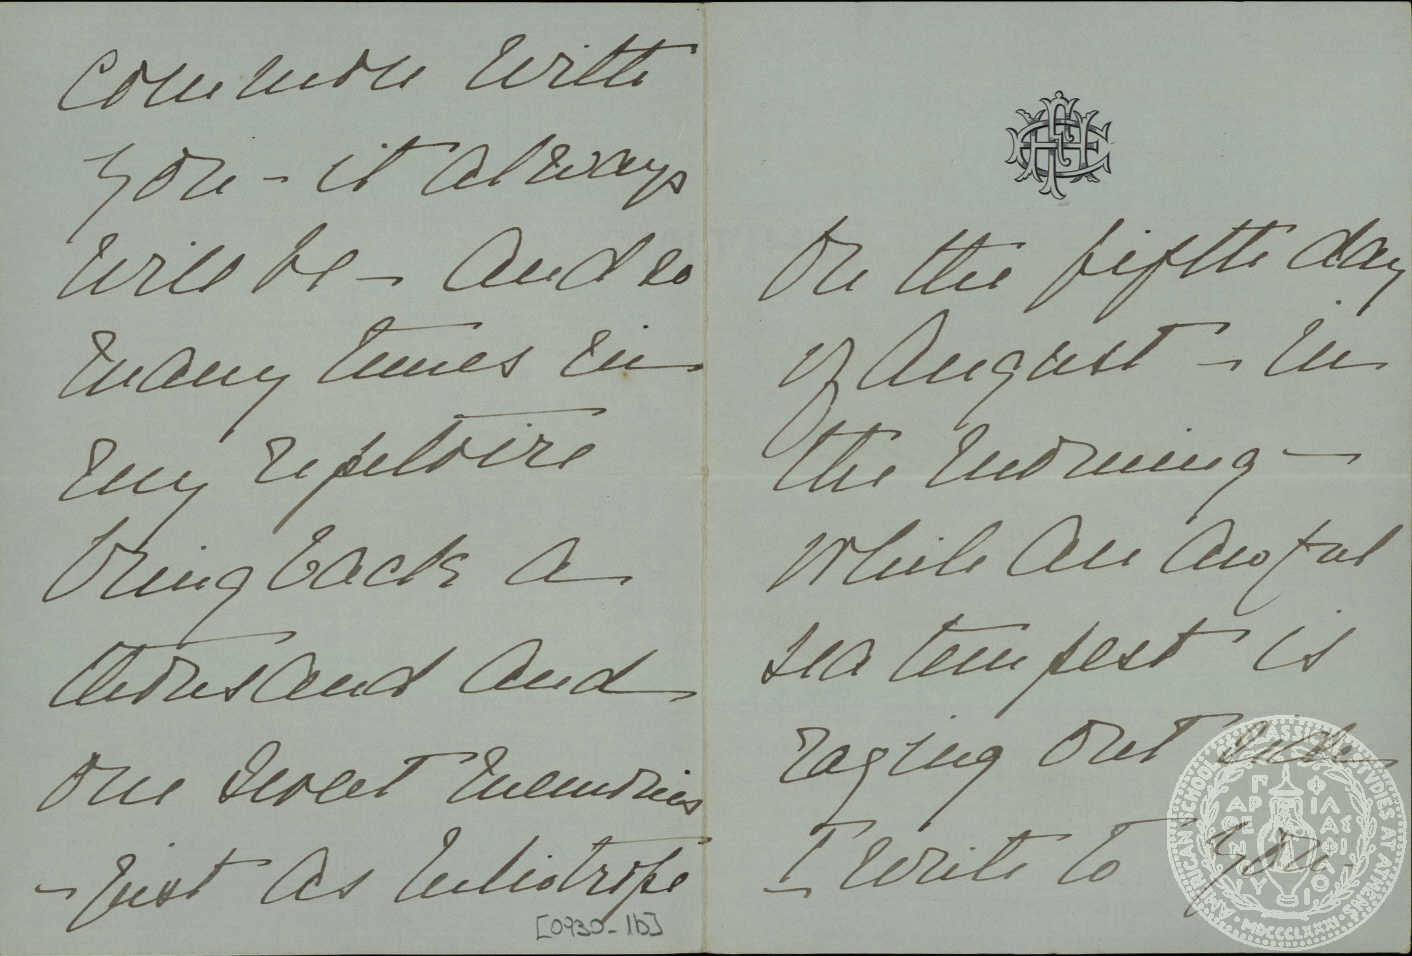 common with
you - it always
will be - and so
many times in
my repetoire
bring back a
thousand and
one sweet memories
- just as heliotrope
[0930-1b]
On the fifth day
of August - in
the morning -
while an awful
sea tempest is
raging out
I write to you -
AMERICAN SCHOOL OF CLASSICAL STUDIES AT ATHENS
MDCCCLXXXI